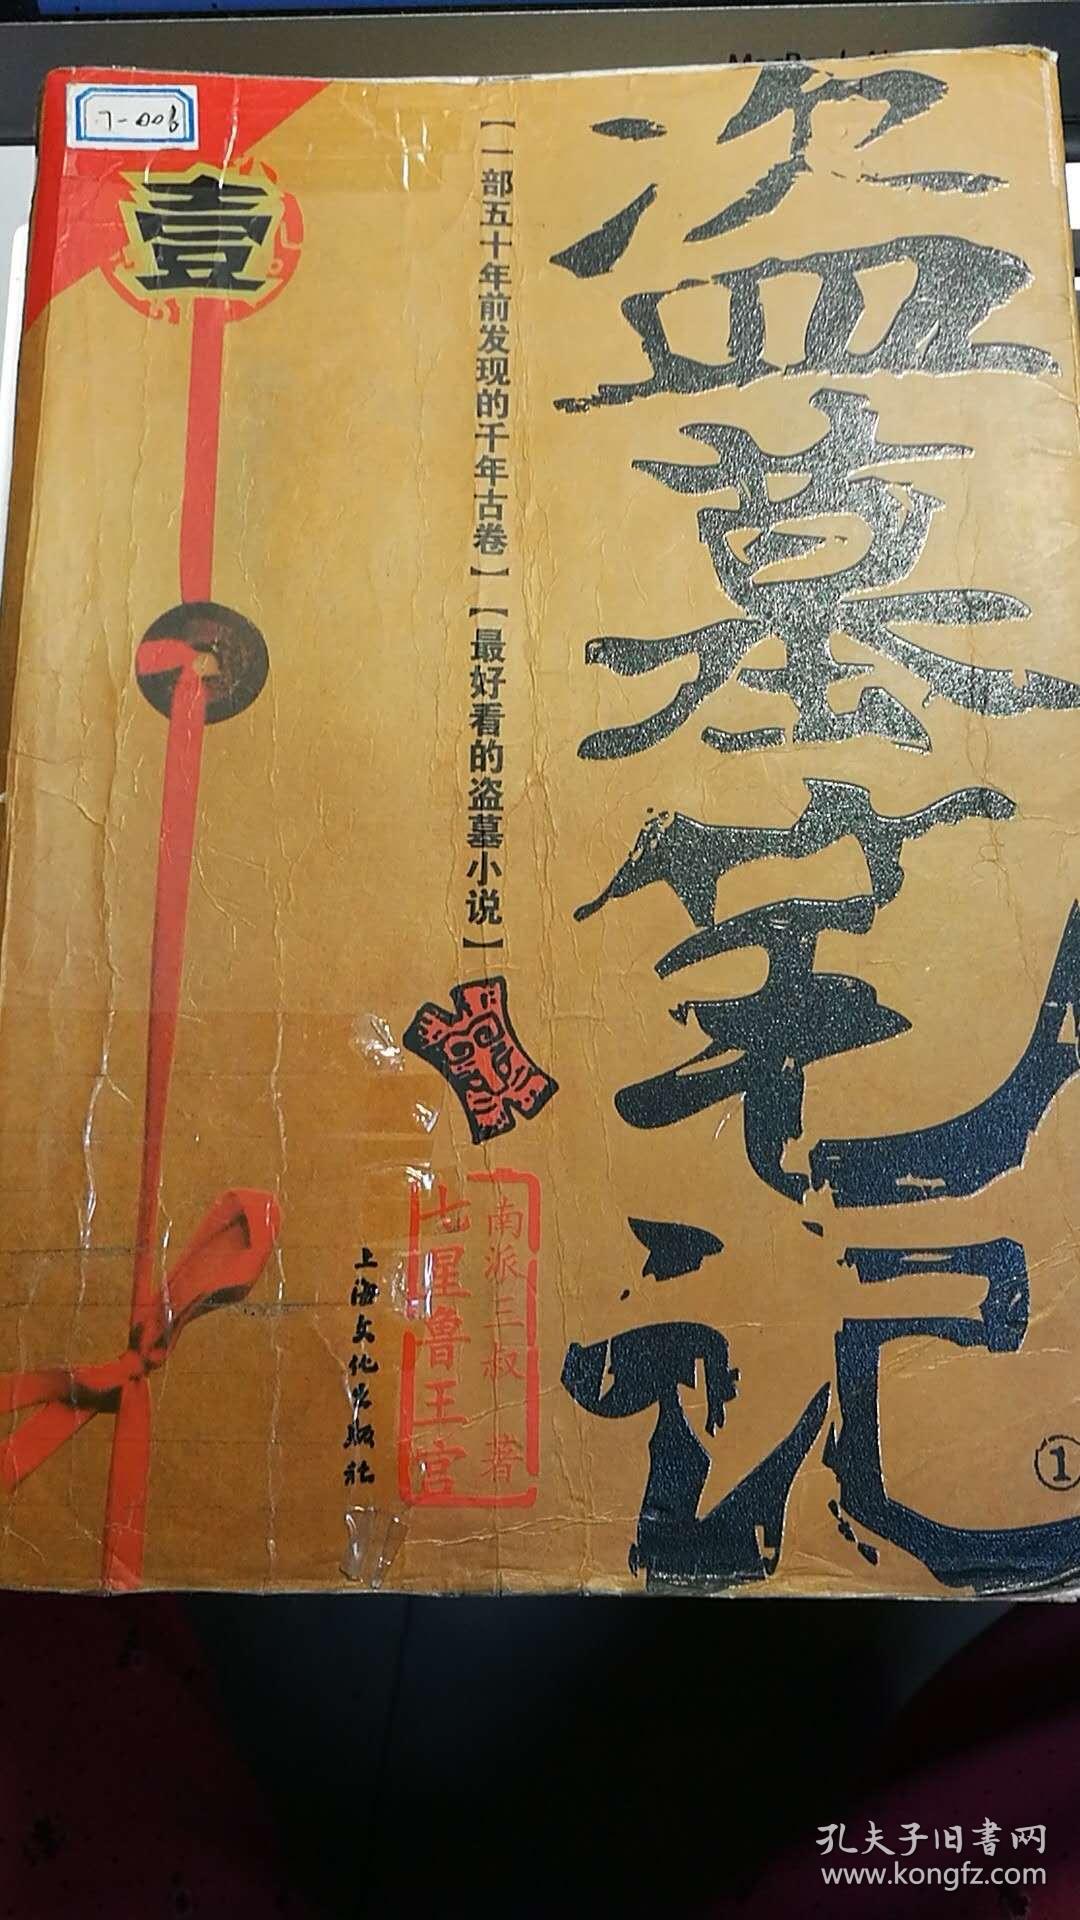 7-006
壹
盗墓笔记
①
【一部五十年前发现的千年古卷】【最好看的盗墓小说】
南派三叔 著
七星鲁王宫
上海文化出版社
孔夫子旧書网
www.kongfz.com